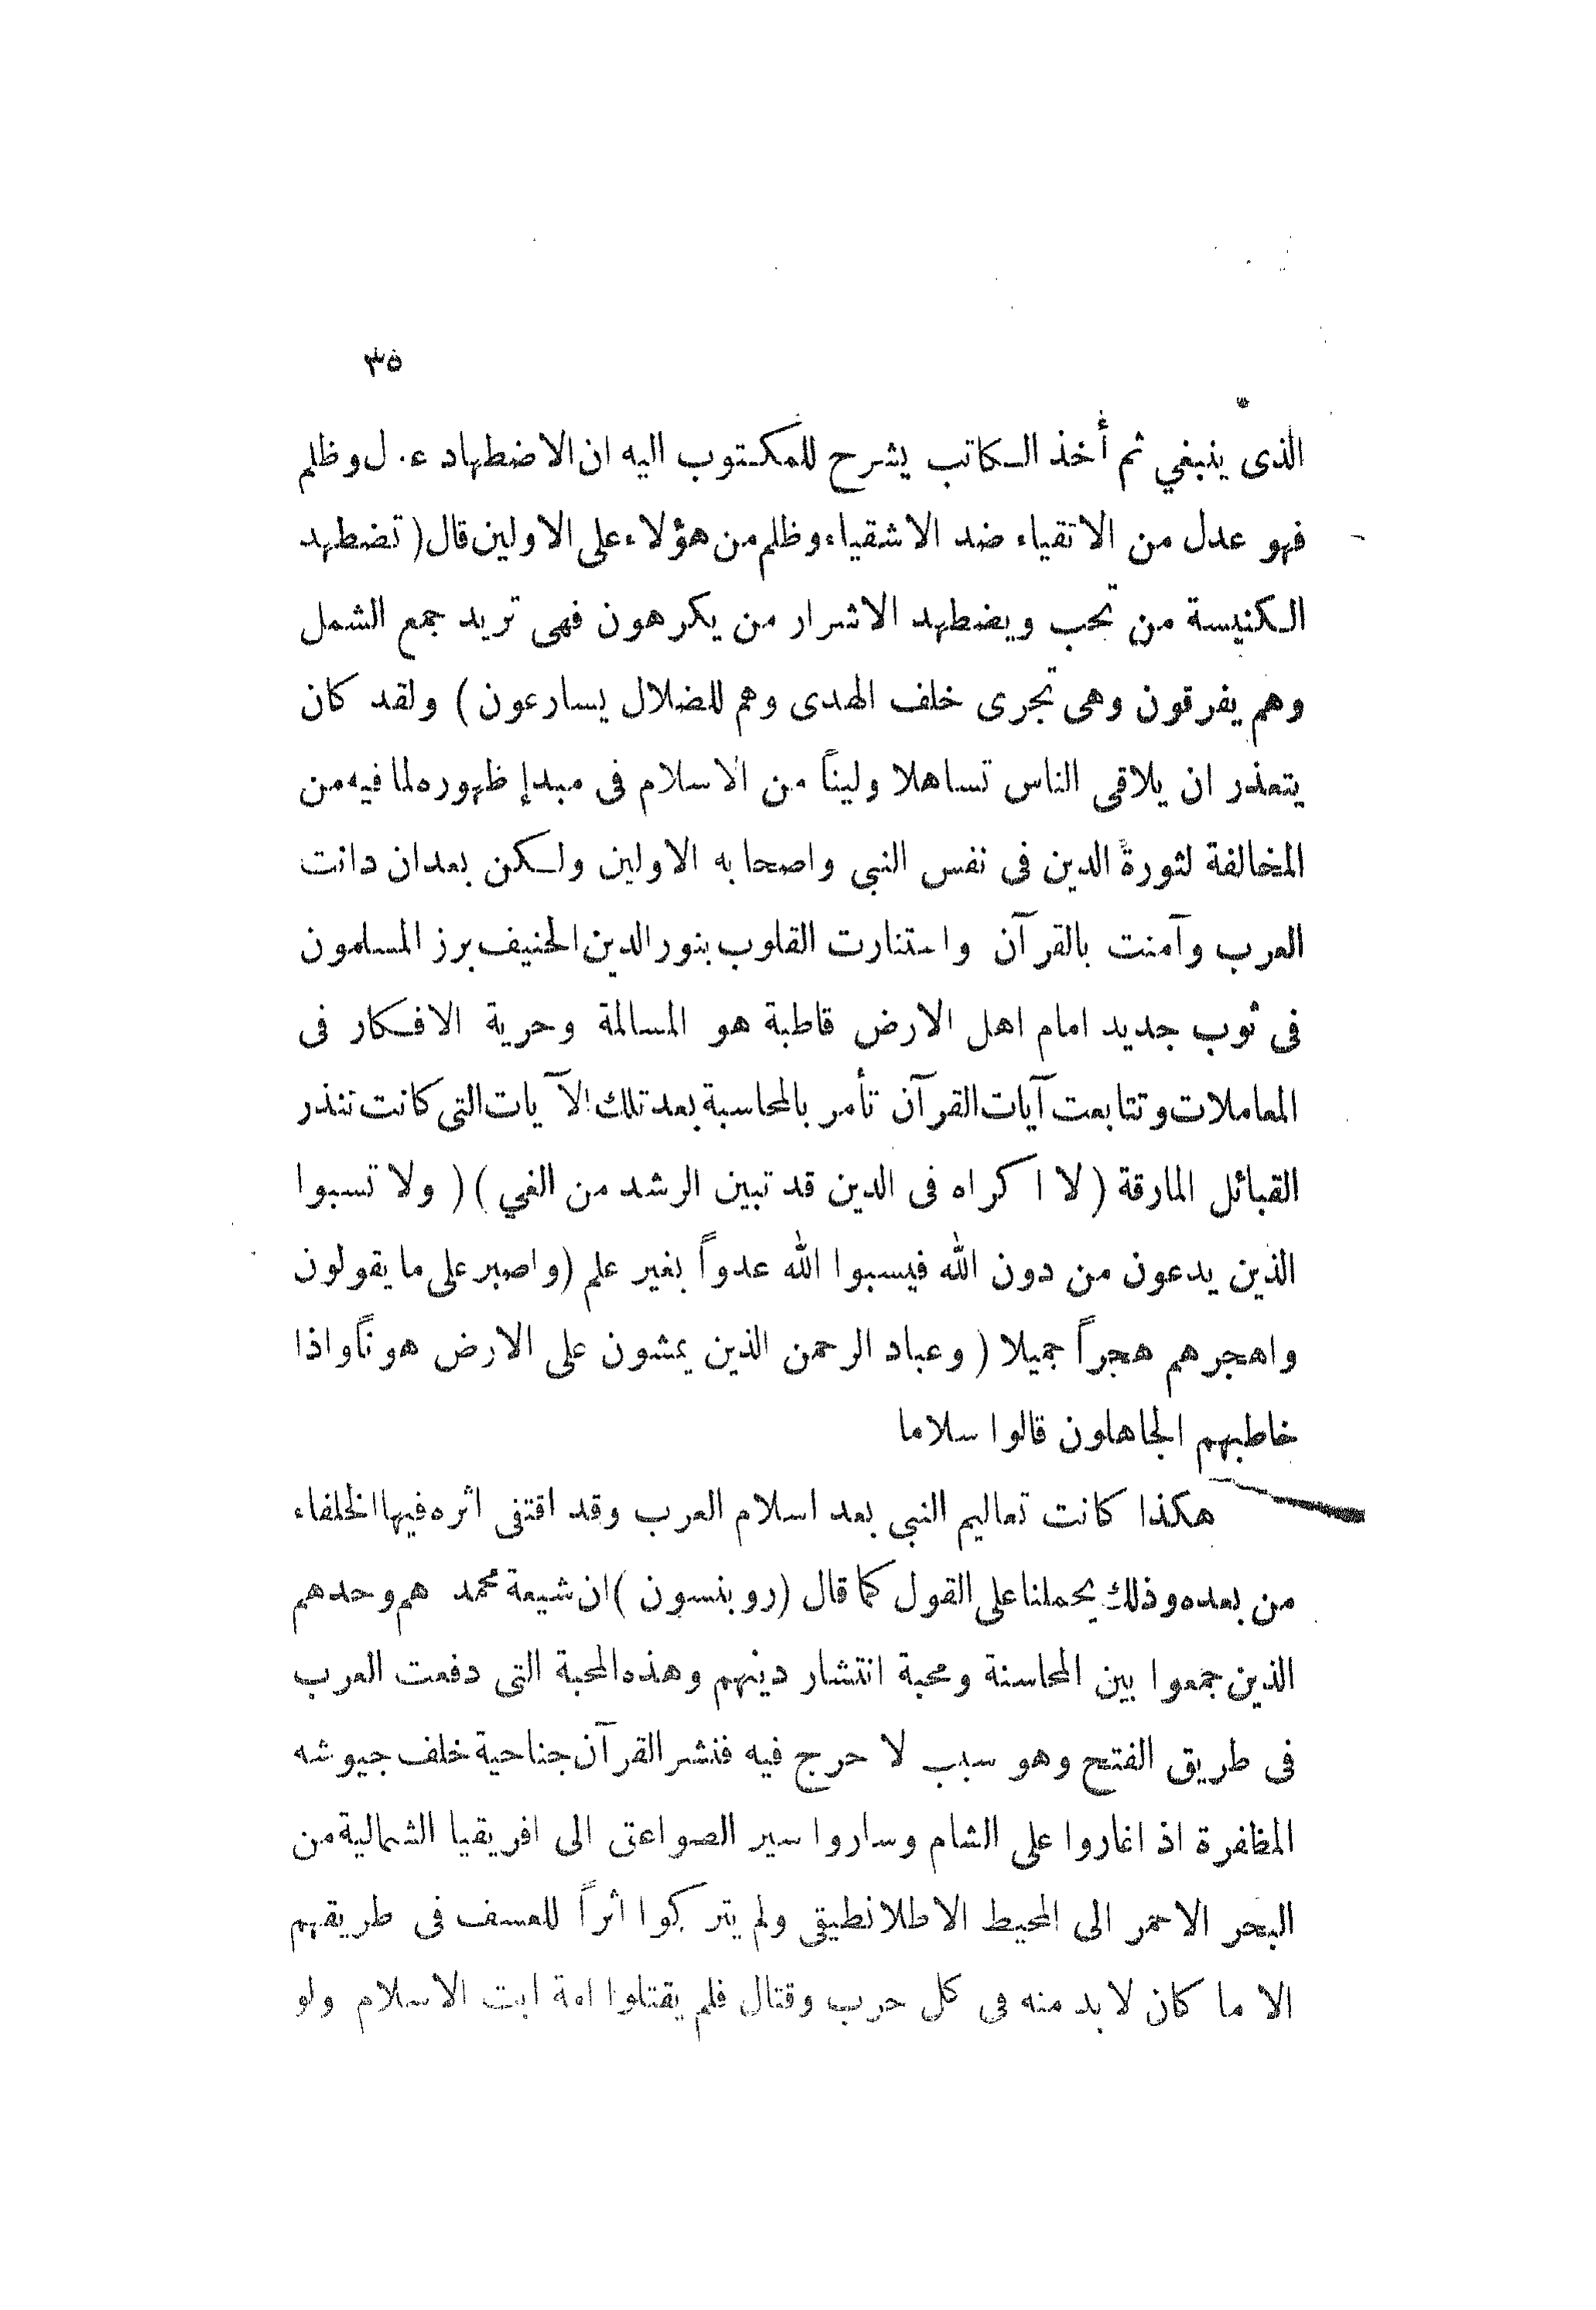 ٣٥
الذى ينبغي ثم أخذ الكاتب يشرح للمكتوب اليه ان الاضطهاد عدل وظلم
فهو عدل من الاتقياء ضد الاشقياء وظلم من هؤلاء على الاولين قال ( تضطهد
الكنيسة من تحب ويضطهد الاشرار من يكرهون فهى تريد جمع الشمل
وهم يفرقون وهى تجرى خلف الهدى وهم للضلال يسارعون ) ولقد كان
يتعذر ان يلاقى الناس تساهلا وليناً من الاسلام فى مبدإ ظهوره لما فيه من
المخالفة لثورة الدين فى نفس النبي واصحابه الاولين ولكن بعد ان دانت
العرب وآمنت بالقرآن واستنارت القلوب بنور الدين الحنيف برز المسلمون
فى ثوب جديد امام اهل الارض قاطبة هو المسالمة وحرية الافكار فى
المعاملات وتتابعت آيات القرآن تأمر بالمحاسبة بعد تلك الآيات التى كانت تنذر
القبائل المارقة ( لا اكراه فى الدين قد تبين الرشد من الغي ) ( ولا تسبوا
الذين يدعون من دون الله فيسبوا الله عدواً بغير علم ( واصبر على ما يقولون
واهجرهم هجراً جميلا ( وعباد الرحمن الذين يمشون على الارض هوناً واذا
خاطبهم الجاهلون قالوا سلاما
هكذا كانت تعاليم النبي بعد اسلام العرب وقد اقتفى اثره فيها الخلفاء
من بعده وذلك يحملنا على القول كما قال ( روبنسون ) ان شيعة محمد هم وحدهم
الذين جمعوا بين المحاسنة ومحبة انتشار دينهم وهذه المحبة التى دفعت العرب
فى طريق الفتح وهو سبب لا حرج فيه فنشر القرآن جناحية خلف جيوشه
المظفرة اذ اغاروا على الشام وساروا سير الصواعق الى افريقيا الشمالية من
البحر الاحمر الى المحيط الاطلانطيقى ولم يتركوا اثراً للعسف فى طريقهم
الا ما كان لابد منه فى كل حرب وقتال فلم يقتلوا امة ابت الاسلام ولو